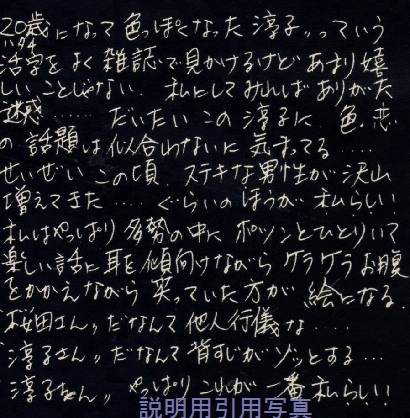 20歳になって色っぽくなった淳子〟っていう
ハタチ
活字をよく雑誌で見かけるけどあまり嬉
しいことじゃない. 私にしてみればありがた
迷惑……だいたいこの淳子に、色恋
の話題は似合わないに気まってる….
せいぜいこの頃、ステキな男性が沢山
増えてきた….ぐらいのほうが私らしい!
私はやっぱり多勢の中にポツンとひとりいて
楽しい話に耳を傾向けながらケラケラお腹
をかかえながら笑っていた方が絵になる.
〝桜田さん〟だなんて他人行儀な….
〝淳子さん〟だなんて背すじがゾッとする…
〝淳子ちゃん〟やっぱりこれが一番私らしい!
説明用引用写真